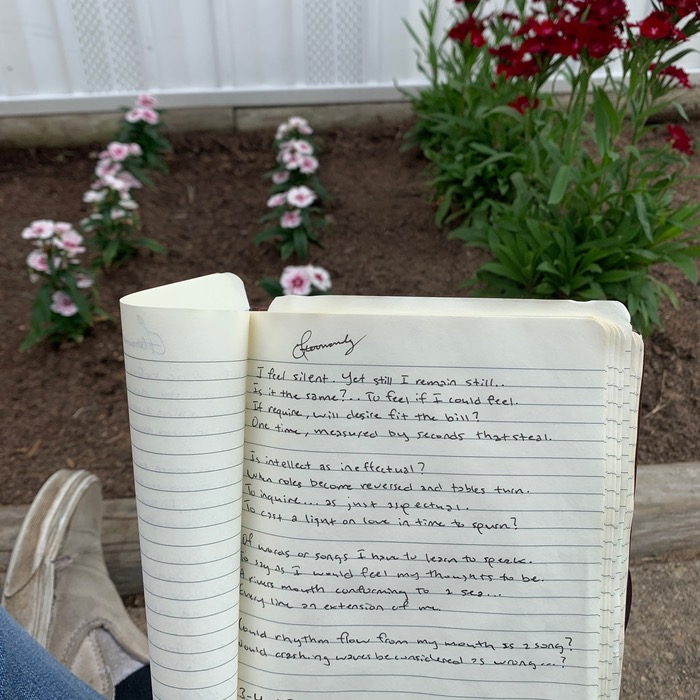 I feel silent. Yet still I remain still..
Is it the same?... To feel if I could feel.
If require, will desire fit the bill?
One time, measured by seconds that steal.
Is intellect as ineffectual?
When roles become reversed and tables turn.
To inquire... as just aspectual.
To cast a light on love in time to spurn?
Of words or songs I have to learn to speak.
To say as I would feel my thoughts to be.
A rivers mouth conforming to a sea...
Every line an extension of me.
Could rhythm flow from my mouth as a song?
Would crashing waves be considered as wrong...?